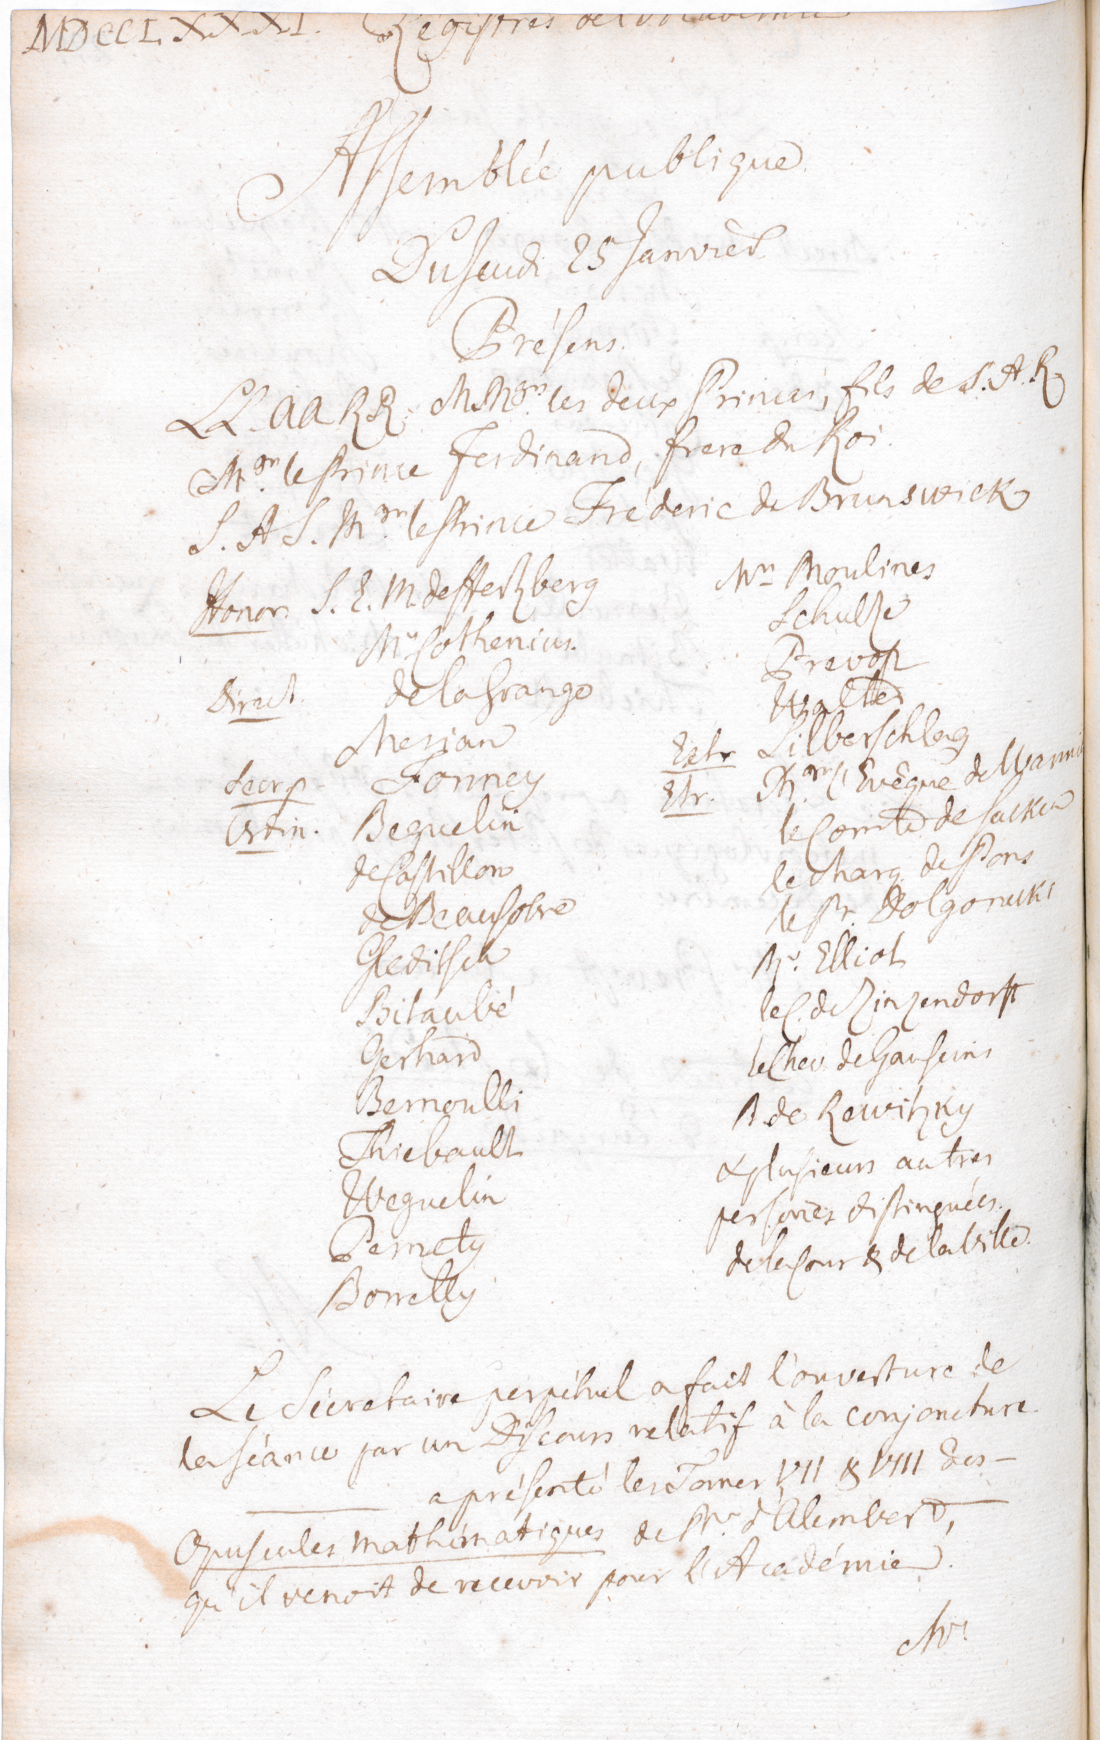 MDCCLXXXI. Registres de l'Academie
Assemblée publique.
Du Jeudi 25 Janvier.
Présens.
LL. AA RR. MMgrs. les deux Princes, fils de S. A. R.
Mgr. le Prince Ferdinand, frere du Roi.
S. A S. Mgr le Prince Fréderic de Brunswick
Honor. S. E. M. de Hertzberg
Mr. Cothenius.
Direct. de la Grange
Merian
Secr. p Formey
Ordin. Beguelin
de Castillon
de Beausobre
Gleditsch
Bitaubé
Gerhard
Bernoulli
Thiebault
Weguelin
Pernety
Borrelly
Mrs Moulines
Schulze
Prevost
Walter
Extr Silberschlag
Etr. Mgr l'Evêque de Warmie
le Comte de Sacken
le Marq. de Pons
le Pr. Dolgorucki
Mr. Elliot
le C. de Zinzendorff
le Chev. de Gaussens
B. de Rewitzky
& plusieurs autres
persones distinguées
de la Cour & de la Ville.
Le Sécretaire perpétuel a fait l'ouverture de
la séance par un Discours relatif à la conjoncture.
a présenté les Tomes VII & VIII des
Opuscules mathématiques de Mr. d'Alembert,
qu'il venoit de recevoir pour l'Académie.
Mr.